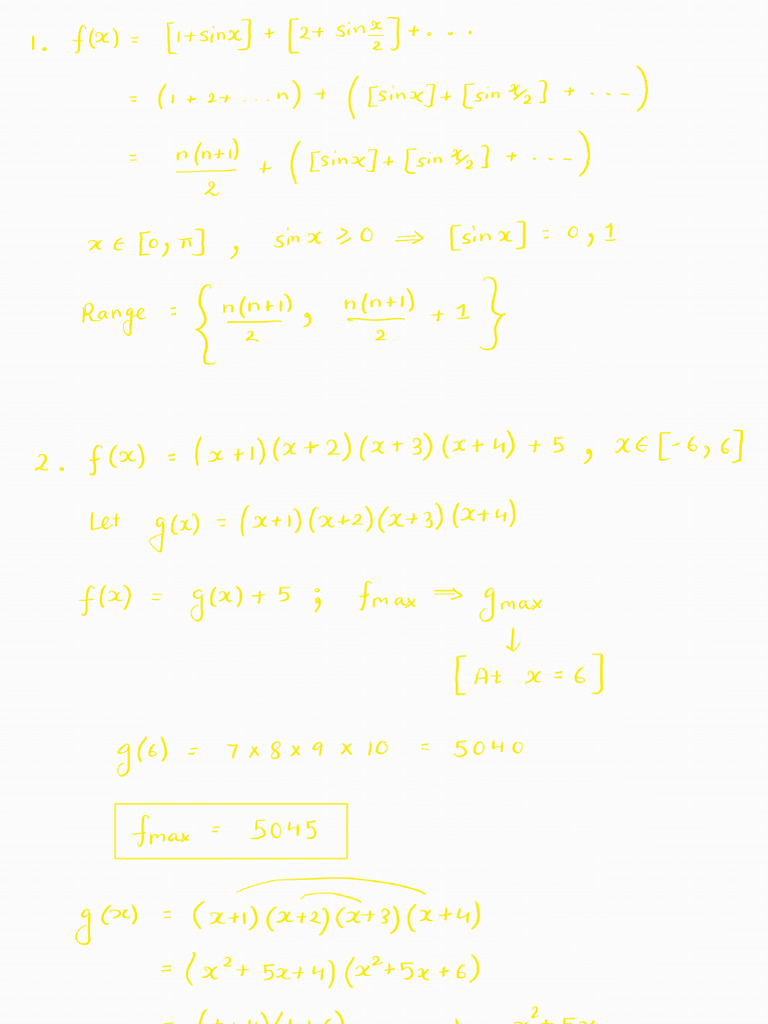 1. f(x) = [1+sinx] + [2+ sin x/2] + . . .
= (1 + 2 + ... n) + ([sinx] + [sin x/2] + ....)
= n(n+1)/2 + ([sinx] + [sin x/2] + ....)
x ∈ [0, π] , sin x ⩾ 0 ⇒ [sin x] = 0, 1
Range = { n(n+1)/2 , n(n+1)/2 + 1 }
2. f(x) = (x+1)(x+2)(x+3)(x+4) + 5 , x ∈ [-6, 6]
Let g(x) = (x+1)(x+2)(x+3)(x+4)
f(x) = g(x) + 5 ; fmax ⇒ gmax
↓
[At x = 6]
g(6) = 7 × 8 × 9 × 10 = 5040
fmax = 5045
g(x) = (x+1)(x+2)(x+3)(x+4)
= (x² + 5x + 4)(x² + 5x + 6)